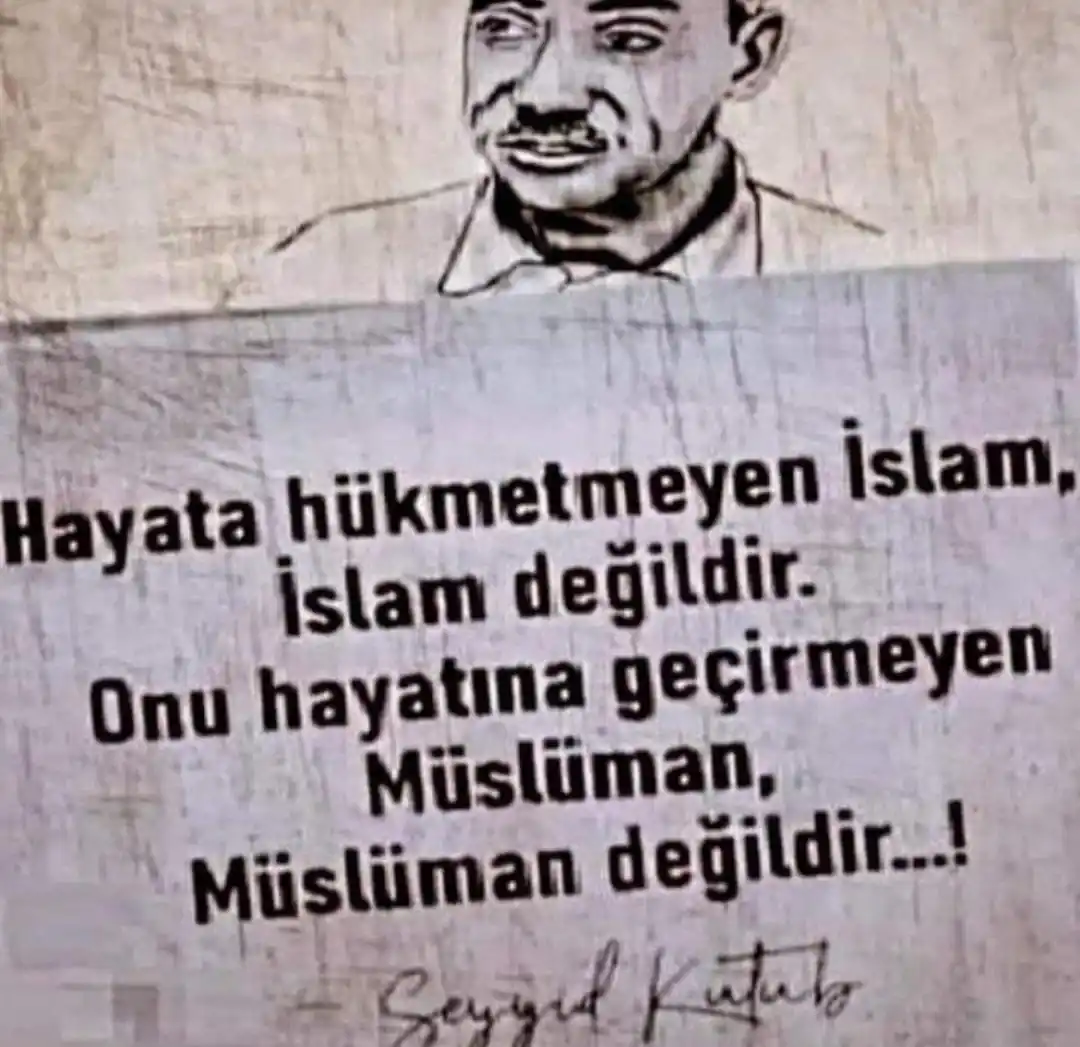 Hayata hükmetmeyen İslam,
İslam değildir.
Onu hayatına geçirmeyen
Müslüman,
Müslüman değildir...!
- Seyyid Kutub